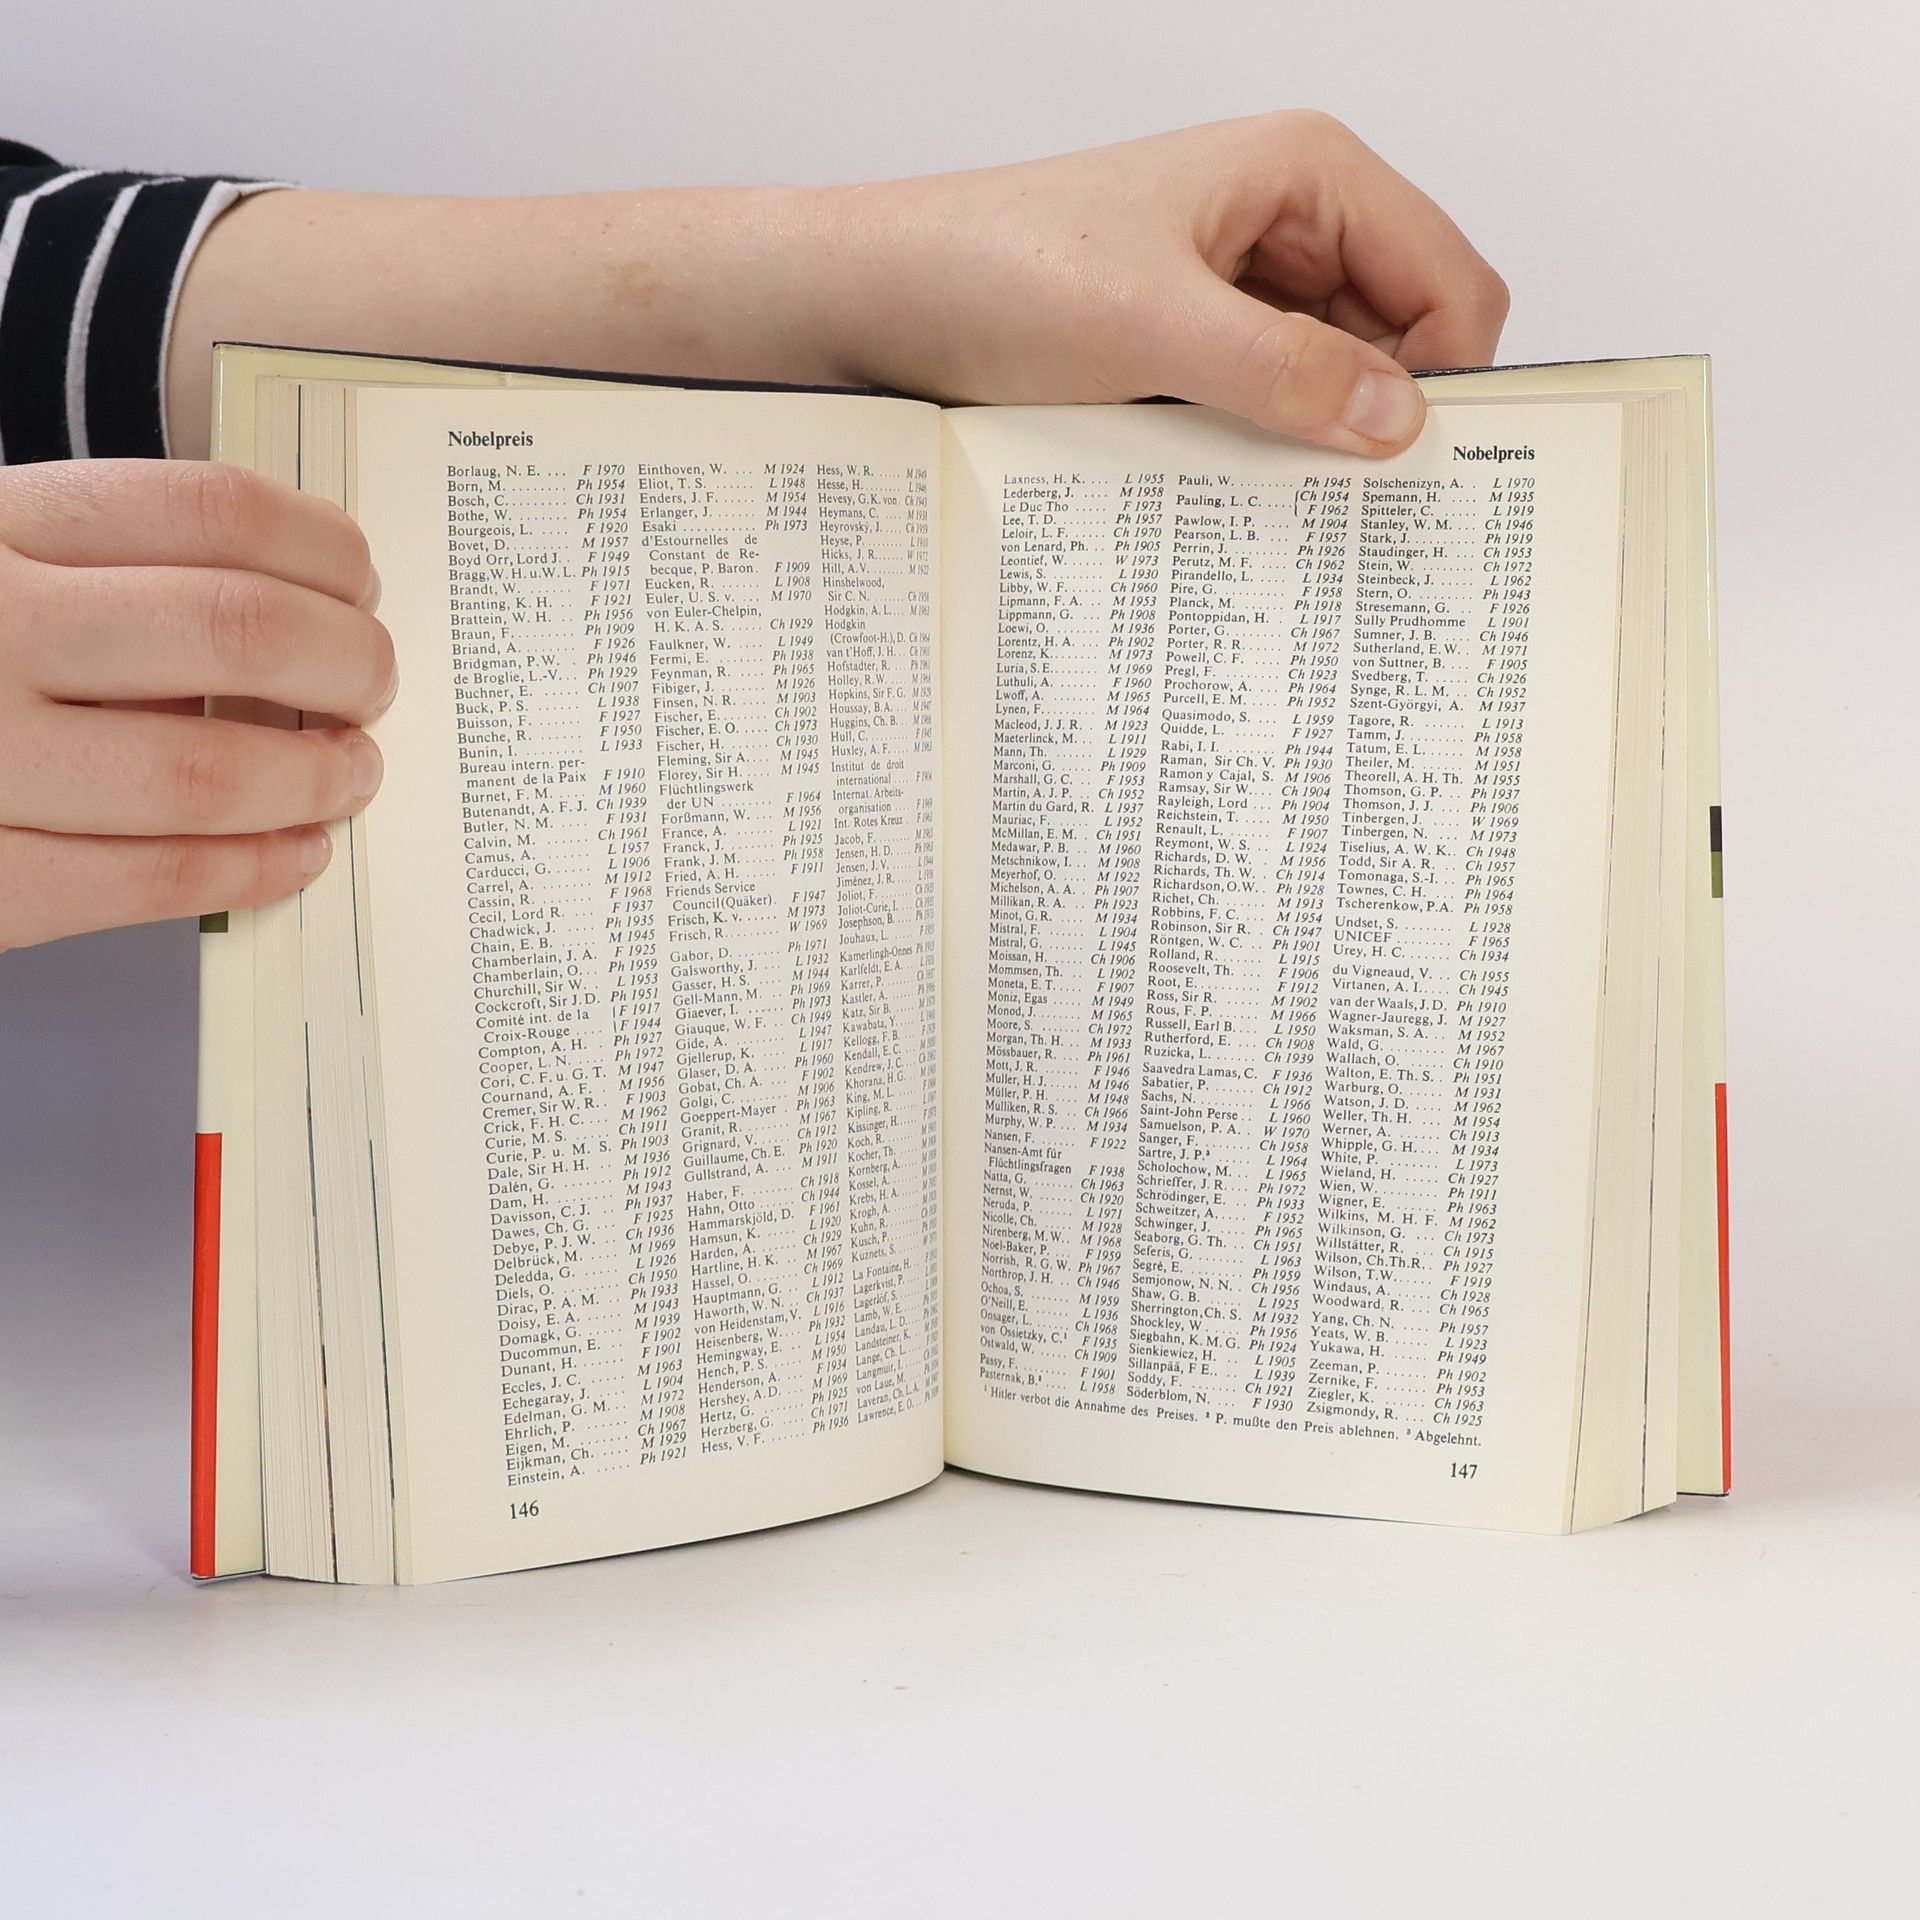 Nobelpreis
Borlaug, N. E. ... F 1970
Born, M. ........ Ph 1954
Bosch, C. ....... Ch 1931
Bothe, W. ....... Ph 1954
Bourgeois, L. .... F 1920
Bovet, D. ........ M 1957
Boyd Orr, Lord J. . F 1949
Bragg, W. H. u. W. L. Ph 1915
Brandt, W. ....... F 1971
Branting, K. H. ... F 1921
Brattein, W. H. .. Ph 1956
Braun, F. ........ Ph 1909
Briand, A. ....... F 1926
Bridgman, P. W. . Ph 1946
de Broglie, L.-V. .. Ph 1929
Buchner, E. ...... Ch 1907
Buck, P. S. ....... L 1938
Buisson, F. ....... F 1927
Bunche, R. ....... F 1950
Bunin, I. ......... L 1933
Bureau intern. per-
manent de la Paix F 1910
Burnet, F. M. .... M 1960
Butenandt, A. F. J. Ch 1939
Butler, N. M. ..... F 1931
Calvin, M. ....... Ch 1961
Camus, A. ....... L 1957
Carducci, G. ...... L 1906
Carrel, A. ........ M 1912
Cassin, R. ........ F 1968
Cecil, Lord R. .... F 1937
Chadwick, J. ..... Ph 1935
Chain, E. B. ...... M 1945
Chamberlain, J. A. F 1925
Chamberlain, O. .. Ph 1959
Churchill, Sir W. .. L 1953
Cockcroft, Sir J. D. Ph 1951
Comité int. de la { F 1917
Croix-Rouge .... { F 1944
Compton, A. H. . Ph 1927
Cooper, L. N. .... Ph 1972
Cori, C. F. u. G. T. M 1947
Cournand, A. F. . M 1956
Cremer, Sir W. R. . F 1903
Crick, F. H. C. ... M 1962
Curie, M. S. ..... Ch 1911
Curie, P. u. M. S. Ph 1903
Dale, Sir H. H. .. M 1936
Dalén, G. ....... Ph 1912
Dam, H. ........ M 1943
Davisson, C. J. .. Ph 1937
Dawes, Ch. G. ... F 1925
Debye, P. J. W. .. Ch 1936
Delbrück, M. .... M 1969
Deledda, G. ..... L 1926
Diels, O. ........ Ch 1950
Dirac, P. A. M. .. Ph 1933
Doisy, E. A. ..... M 1943
Domagk, G. ..... M 1939
Ducommun, E. .. F 1902
Dunant, H. ...... F 1901
Eccles, J. C. ..... M 1963
Echegaray, J. .... L 1904
Edelman, G. M. .. M 1972
Ehrlich, P. ....... M 1908
Eigen, M. ....... Ch 1967
Eijkman, Ch. .... M 1929
Einstein, A. ..... Ph 1921
Einthoven, W. ... M 1924
Eliot, T. S. ....... L 1948
Enders, J. F. ..... M 1954
Erlanger, J. ...... M 1944
Esaki ........... Ph 1973
d'Estournelles de
Constant de Re-
becque, P. Baron. F 1909
Eucken, R. ...... L 1908
Euler, U. S. v. ... M 1970
von Euler-Chelpin,
H. K. A. S. ..... Ch 1929
Faulkner, W. .... L 1949
Fermi, E. ....... Ph 1938
Feynman, R. .... Ph 1965
Fibiger, J. ....... M 1926
Finsen, N. R. .... M 1903
Fischer, E. ...... Ch 1902
Fischer, E. O. ... Ch 1973
Fischer, H. ...... Ch 1930
Fleming, Sir A. ... M 1945
Florey, Sir H. .... M 1945
Flüchtlingswerk
der UN ........ F 1964
Forßmann, W. ... M 1956
France, A. ...... L 1921
Franck, J. ....... Ph 1925
Frank, J. M. ..... Ph 1958
Fried, A. H. ..... F 1911
Friends Service
Council (Quäker). F 1947
Frisch, K. v. ..... M 1973
Frisch, R. ....... W 1969
Gabor, D. ....... Ph 1971
Galsworthy, J. ... L 1932
Gasser, H. S. .... M 1944
Gell-Mann, M. .. Ph 1969
Giaever, I. ...... Ph 1973
Giauque, W. F. .. Ch 1949
Gide, A. ........ L 1947
Gjellerup, K. .... L 1917
Glaser, D. A. .... Ph 1960
Gobat, Ch. A. ... F 1902
Golgi, C. ....... M 1906
Goeppert-Mayer . Ph 1963
Granit, R. ...... M 1967
Grignard, V. .... Ch 1912
Guillaume, Ch. E. Ph 1920
Gullstrand, A. ... M 1911
Haber, F. ....... Ch 1918
Hahn, Otto ..... Ch 1944
Hammarskjöld, D. F 1961
Hamsun, K. .... L 1920
Harden, A. ..... Ch 1929
Hartline, H. K. .. M 1967
Hassel, O. ...... Ch 1969
Hauptmann, G. .. L 1912
Haworth, W. N. . Ch 1937
von Heidenstam, V. L 1916
Heisenberg, W. ... Ph 1932
Hemingway, E. .. L 1954
Hench, P. S. ..... M 1950
Henderson, A. ... F 1934
Hershey, A. D. ... M 1969
Hertz, G. ....... Ph 1925
Herzberg, G. .... Ch 1971
Hess, V. F. ...... Ph 1936
Hess, W. R. ..... M 1949
Hesse, H. ....... L 1946
Hevesy, G. K. von. Ch 1943
Heymans, C. .... M 1938
Heyrovský, J. ... Ch 1959
Heyse, P. ....... L 1910
Hicks, J. R. ..... W 1972
Hill, A. V. ...... M 1922
Hinshelwood,
Sir C. N. ...... Ch 1956
Hodgkin, A. L. .. M 1963
Hodgkin
(Crowfoot-H.), D. Ch 1964
van t'Hoff, J. H. .. Ch 1901
Hofstadter, R. ... Ph 1961
Holley, R. W. ... M 1968
Hopkins, Sir F. G. M 1929
Houssay, B. A. .. M 1947
Huggins, Ch. B. .. M 1966
Hull, C. ........ F 1945
Huxley, A. F. ... M 1963
Institut de droit
international .... F 1904
Internat. Arbeits-
organisation .... F 1969
Int. Rotes Kreuz . F 1963
Jacob, F. ....... M 1965
Jensen, H. D. ... Ph 1963
Jensen, J. V. .... L 1944
Jiménez, J. R. ... L 1956
Joliot, F. ....... Ch 1935
Joliot-Curie, I. ... Ch 1935
Josephson, B. ... Ph 1973
Jouhaux, L. ..... F 1951
Kamerlingh-Onnes Ph 1913
Karlfeldt, E. A. .. L 1931
Karrer, P. ...... Ch 1937
Kastler, A. ..... Ph 1966
Katz, Sir B. ..... M 1970
Kawabata, Y. ... L 1968
Kellogg, F. B. ... F 1929
Kendall, E. C. ... M 1950
Kendrew, J. C. .. Ch 1962
Khorana, H. G. .. M 1968
King, M. L. ..... F 1964
Kipling, R. ..... L 1907
Kissinger, H. .... F 1973
Koch, R. ....... M 1905
Kocher, Th. .... M 1909
Kornberg, A. ... M 1959
Kossel, A. ...... M 1910
Krebs, H. A. ... M 1953
Krogh, A. ...... M 1920
Kuhn, R. ....... Ch 1938
Kusch, P. ...... Ph 1955
Kuznets, S. ..... W 1971
La Fontaine, H. .
Lagerkvist, P. ...
Lagerlöf, S. .....
Lamb, W. E. ....
Landau, L. D. ...
Landsteiner, K. ..
Lange, Ch. L. ...
Langmuir, I. ....
von Laue, M. ....
Laveran, Ch. L. A.
Lawrence, E. O. ..
146
Nobelpreis
Laxness, H. K. .... L 1955
Lederberg, J. ..... M 1958
Le Duc Tho ..... F 1973
Lee, T. D. ....... Ph 1957
Leloir, L. F. ...... Ch 1970
von Lenard, Ph. .. Ph 1905
Leontief, W. ..... W 1973
Lewis, S. ........ L 1930
Libby, W. F. ..... Ch 1960
Lipmann, F. A. .. M 1953
Lippmann, G. ... Ph 1908
Loewi, O. ....... M 1936
Lorentz, H. A. ... Ph 1902
Lorenz, K. ....... M 1973
Luria, S. E. ...... M 1969
Luthuli, A. ...... F 1960
Lwoff, A. ....... M 1965
Lynen, F. ....... M 1964
Macleod, J. J. R. . M 1923
Maeterlinck, M. .. L 1911
Mann, Th. ...... L 1929
Marconi, G. ..... Ph 1909
Marshall, G. C. .. F 1953
Martin, A. J. P. .. Ch 1952
Martin du Gard, R. L 1937
Mauriac, F. ..... L 1952
McMillan, E. M. . Ch 1951
Medawar, P. B. .. M 1960
Metschnikow, I. .. M 1908
Meyerhof, O. .... M 1922
Michelson, A. A. . Ph 1907
Millikan, R. A. .. Ph 1923
Minot, G. R. .... M 1934
Mistral, F. ...... L 1904
Mistral, G. ...... L 1945
Moissan, H. ..... Ch 1906
Mommsen, Th. .. L 1902
Moneta, E. T. ... F 1907
Moniz, Egas ..... M 1949
Monod, J. ....... M 1965
Moore, S. ....... Ch 1972
Morgan, Th. H. .. M 1933
Mössbauer, R. ... Ph 1961
Mott, J. R. ...... F 1946
Muller, H. J. .... M 1946
Müller, P. H. .... M 1948
Mulliken, R. S. .. Ch 1966
Murphy, W. P. .. M 1934
Nansen, F. ...... F 1922
Nansen-Amt für
Flüchtlingsfragen F 1938
Natta, G. ....... Ch 1963
Nernst, W. ...... Ch 1920
Neruda, P. ...... L 1971
Nicolle, Ch. ..... M 1928
Nirenberg, M. W. . M 1968
Noel-Baker, P. ... F 1959
Norrish, R. G. W. Ph 1967
Northrop, J. H. .. Ch 1946
Ochoa, S. ....... M 1959
O'Neill, E. ...... L 1936
Onsager, L. ..... Ch 1968
von Ossietzky, C.¹ F 1935
Ostwald, W. .... Ch 1909
Passy, F. ........ F 1901
Pasternak, B.² .... L 1958
Pauli, W. ........ Ph 1945
Pauling, L. C. .... { Ch 1954
{ F 1962
Pawlow, I. P. .... M 1904
Pearson, L. B. ... F 1957
Perrin, J. ....... Ph 1926
Perutz, M. F. .... Ch 1962
Pirandello, L. .... L 1934
Pire, G. ......... F 1958
Planck, M. ...... Ph 1918
Pontoppidan, H. .. L 1917
Porter, G. ....... Ch 1967
Porter, R. R. .... M 1972
Powell, C. F. .... Ph 1950
Pregl, F. ........ Ch 1923
Prochorow, A. ... Ph 1964
Purcell, E. M. ... Ph 1952
Quasimodo, S. ... L 1959
Quidde, L. ...... F 1927
Rabi, I. I. ....... Ph 1944
Raman, Sir Ch. V. Ph 1930
Ramon y Cajal, S. M 1906
Ramsay, Sir W. ... Ch 1904
Rayleigh, Lord ... Ph 1904
Reichstein, T. ... M 1950
Renault, L. ...... F 1907
Reymont, W. S. .. L 1924
Richards, D. W. . M 1956
Richards, Th. W. . Ch 1914
Richardson, O. W. . Ph 1928
Richet, Ch. ..... M 1913
Robbins, F. C. ... M 1954
Robinson, Sir R. . Ch 1947
Röntgen, W. C. .. Ph 1901
Rolland, R. ..... L 1915
Roosevelt, Th. ... F 1906
Root, E. ........ F 1912
Ross, Sir R. ..... M 1902
Rous, F. P. ..... M 1966
Russell, Earl B. ... L 1950
Rutherford, E. ... Ch 1908
Ruzicka, L. ..... Ch 1939
Saavedra Lamas, C. F 1936
Sabatier, P. ..... Ch 1912
Sachs, N. ....... L 1966
Saint-John Perse .. L 1960
Samuelson, P. A. . W 1970
Sanger, F. ....... Ch 1958
Sartre, J. P.³ ..... L 1964
Scholochow, M. .. L 1965
Schrieffer, J. R. .. Ph 1972
Schrödinger, E. .. Ph 1933
Schweitzer, A. .... F 1952
Schwinger, J. .... Ph 1965
Seaborg, G. Th. .. Ch 1951
Seferis, G. ...... L 1963
Segré, E. ....... Ph 1959
Semjonow, N. N. . Ch 1956
Shaw, G. B. ..... L 1925
Sherrington, Ch. S. M 1932
Shockley, W. .... Ph 1956
Siegbahn, K. M. G. Ph 1924
Sienkiewicz, H. .. L 1905
Sillanpää, F E. .. L 1939
Soddy, F. ....... Ch 1921
Söderblom, N. ... F 1930
Solschenizyn, A. . L 1970
Spemann, H. .... M 1935
Spitteler, C. ..... L 1919
Stanley, W. M. ... Ch 1946
Stark, J. ........ Ph 1919
Staudinger, H. ... Ch 1953
Stein, W. ....... Ch 1972
Steinbeck, J. ..... L 1962
Stern, O. ....... Ph 1943
Stresemann, G. .. F 1926
Sully Prudhomme L 1901
Sumner, J. B. .... Ch 1946
Sutherland, E. W. . M 1971
von Suttner, B. ... F 1905
Svedberg, T. .... Ch 1926
Synge, R. L. M. .. Ch 1952
Szent-Györgyi, A. M 1937
Tagore, R. ...... L 1913
Tamm, J. ....... Ph 1958
Tatum, E. L. .... M 1958
Theiler, M. ..... M 1951
Theorell, A. H. Th. M 1955
Thomson, G. P. .. Ph 1937
Thomson, J. J. ... Ph 1906
Tinbergen, J. .... W 1969
Tinbergen, N. ... M 1973
Tiselius, A. W. K. . Ch 1948
Todd, Sir A. R. .. Ch 1957
Tomonaga, S.-I. .. Ph 1965
Townes, C. H. ... Ph 1964
Tscherenkow, P. A. Ph 1958
Undset, S. ...... L 1928
UNICEF ....... F 1965
Urey, H. C. ..... Ch 1934
du Vigneaud, V. .. Ch 1955
Virtanen, A. I. ... Ch 1945
van der Waals, J. D. Ph 1910
Wagner-Jauregg, J. M 1927
Waksman, S. A. .. M 1952
Wald, G. ....... M 1967
Wallach, O. .... Ch 1910
Walton, E. Th. S. . Ph 1951
Warburg, O. .... M 1931
Watson, J. D. ... M 1962
Weller, Th. H. .. M 1954
Werner, A. ..... Ch 1913
Whipple, G. H. .. M 1934
White, P. ....... L 1973
Wieland, H. .... Ch 1927
Wien, W. ....... Ph 1911
Wigner, E. ..... Ph 1963
Wilkins, M. H. F. M 1962
Wilkinson, G. ... Ch 1973
Willstätter, R. ... Ch 1915
Wilson, Ch. Th. R. . Ph 1927
Wilson, T. W. .... F 1919
Windaus, A. .... Ch 1928
Woodward, R. ... Ch 1965
Yang, Ch. N. ... Ph 1957
Yeats, W. B. .... L 1923
Yukawa, H. .... Ph 1949
Zeeman, P. ..... Ph 1902
Zernike, F. ..... Ph 1953
Ziegler, K. ..... Ch 1963
Zsigmondy, R. ... Ch 1925
¹ Hitler verbot die Annahme des Preises. ² P. mußte den Preis ablehnen. ³ Abgelehnt.
147